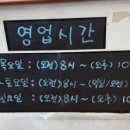 영업시간
목요일: (오전)8시~(오후)10
~토요일: (오전)8시~(익일/오전)
일요일: (오전)8시~(오후)10